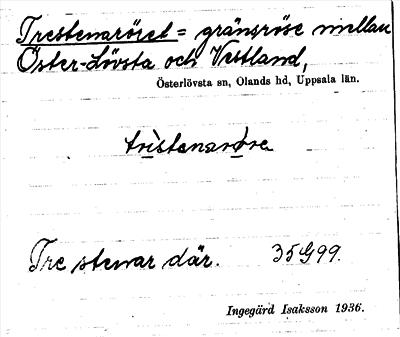 Trestenaröset = gränsröse mellan
Öster-Lövsta och Vittland,
Österlövsta sn, Olands hd, Uppsala län.
Tre stenar där. 35G99.
Ingegärd Isaksson 1936.